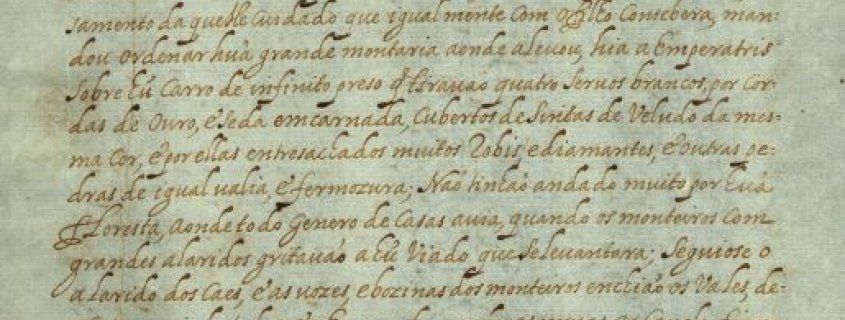 samento da quelle Cuidado que igual mente Com o filho Consebera, man:
dou ordenar huã grande montaria aonde a levou, hia a Emperatris
sobre hũ Carro de infinito preso q̃ tiravaõ quatro servos brancos, por Cor:
das de Ouro, e seda emcarnada, Cubertos de Sintas de Veludo da mes:
ma Cor, e por ellas entresachados muitos Robis, e diamantes, e outras pe:
dras de igual valia, e fermozura; Naõ tinhaõ andado muito por huã
floresta, aonde todo Genero de Casas avia, quando os monteiros Com
grandes alaridos gritavaõ a hũ Viado, que se levantara; Seguiose o
alarido dos Caes, e as vozes, e bozinas dos monteiros enchiaõ os Vales, de: